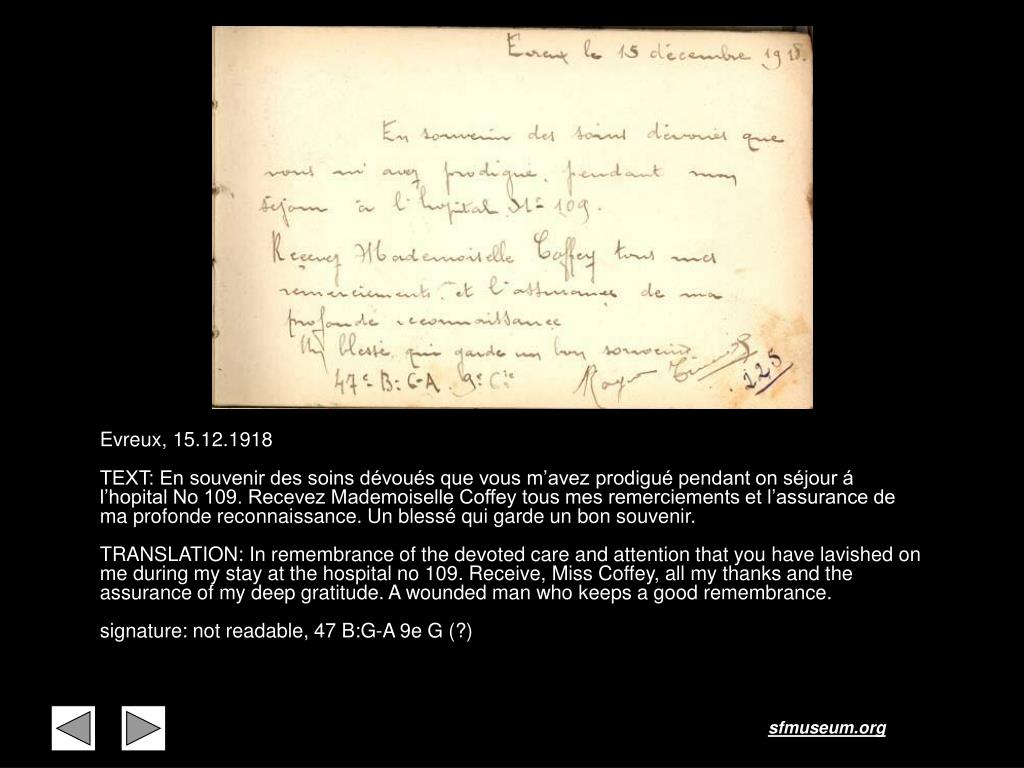 Evreux le 15 décembre 1918.
En souvenir des soins dévoués que
vous m'avez prodigué, pendant mon
séjour à l'hopital No 109.
Recevez Mademoiselle Coffey tous mes
remerciements, et l'assurance de ma
profonde reconnaissance
Un blessé, qui garde un bon souvenir.
47e B: C-A. 9e Cie
Roger
225
Evreux, 15.12.1918
TEXT: En souvenir des soins dévoués que vous m’avez prodigué pendant on séjour á
l’hopital No 109. Recevez Mademoiselle Coffey tous mes remerciements et l’assurance de
ma profonde reconnaissance. Un blessé qui garde un bon souvenir.
TRANSLATION: In remembrance of the devoted care and attention that you have lavished on
me during my stay at the hospital no 109. Receive, Miss Coffey, all my thanks and the
assurance of my deep gratitude. A wounded man who keeps a good remembrance.
signature: not readable, 47 B:G-A 9e G (?)
sfmuseum.org